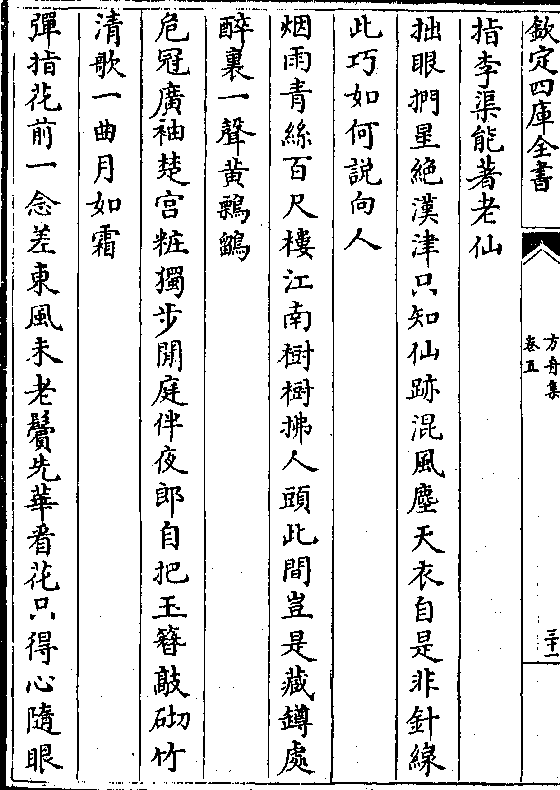 欽定四庫全書
方舟集
卷五
三十一
指李渠能著老仙
拙眼捫星絶漢津只知仙跡混風塵天衣自是非針線
此巧如何説向人
烟雨青絲百尺樓江南樹樹拂人頭此間豈是藏鐏處
醉裏一聲黄鸝鶹
危冠廣袖楚宫粧獨步閒庭伴夜郎自把玉簮敲砌竹
清歌一曲月如霜
彈指花前一念差東風未老鬢先華看花只得心隨眼